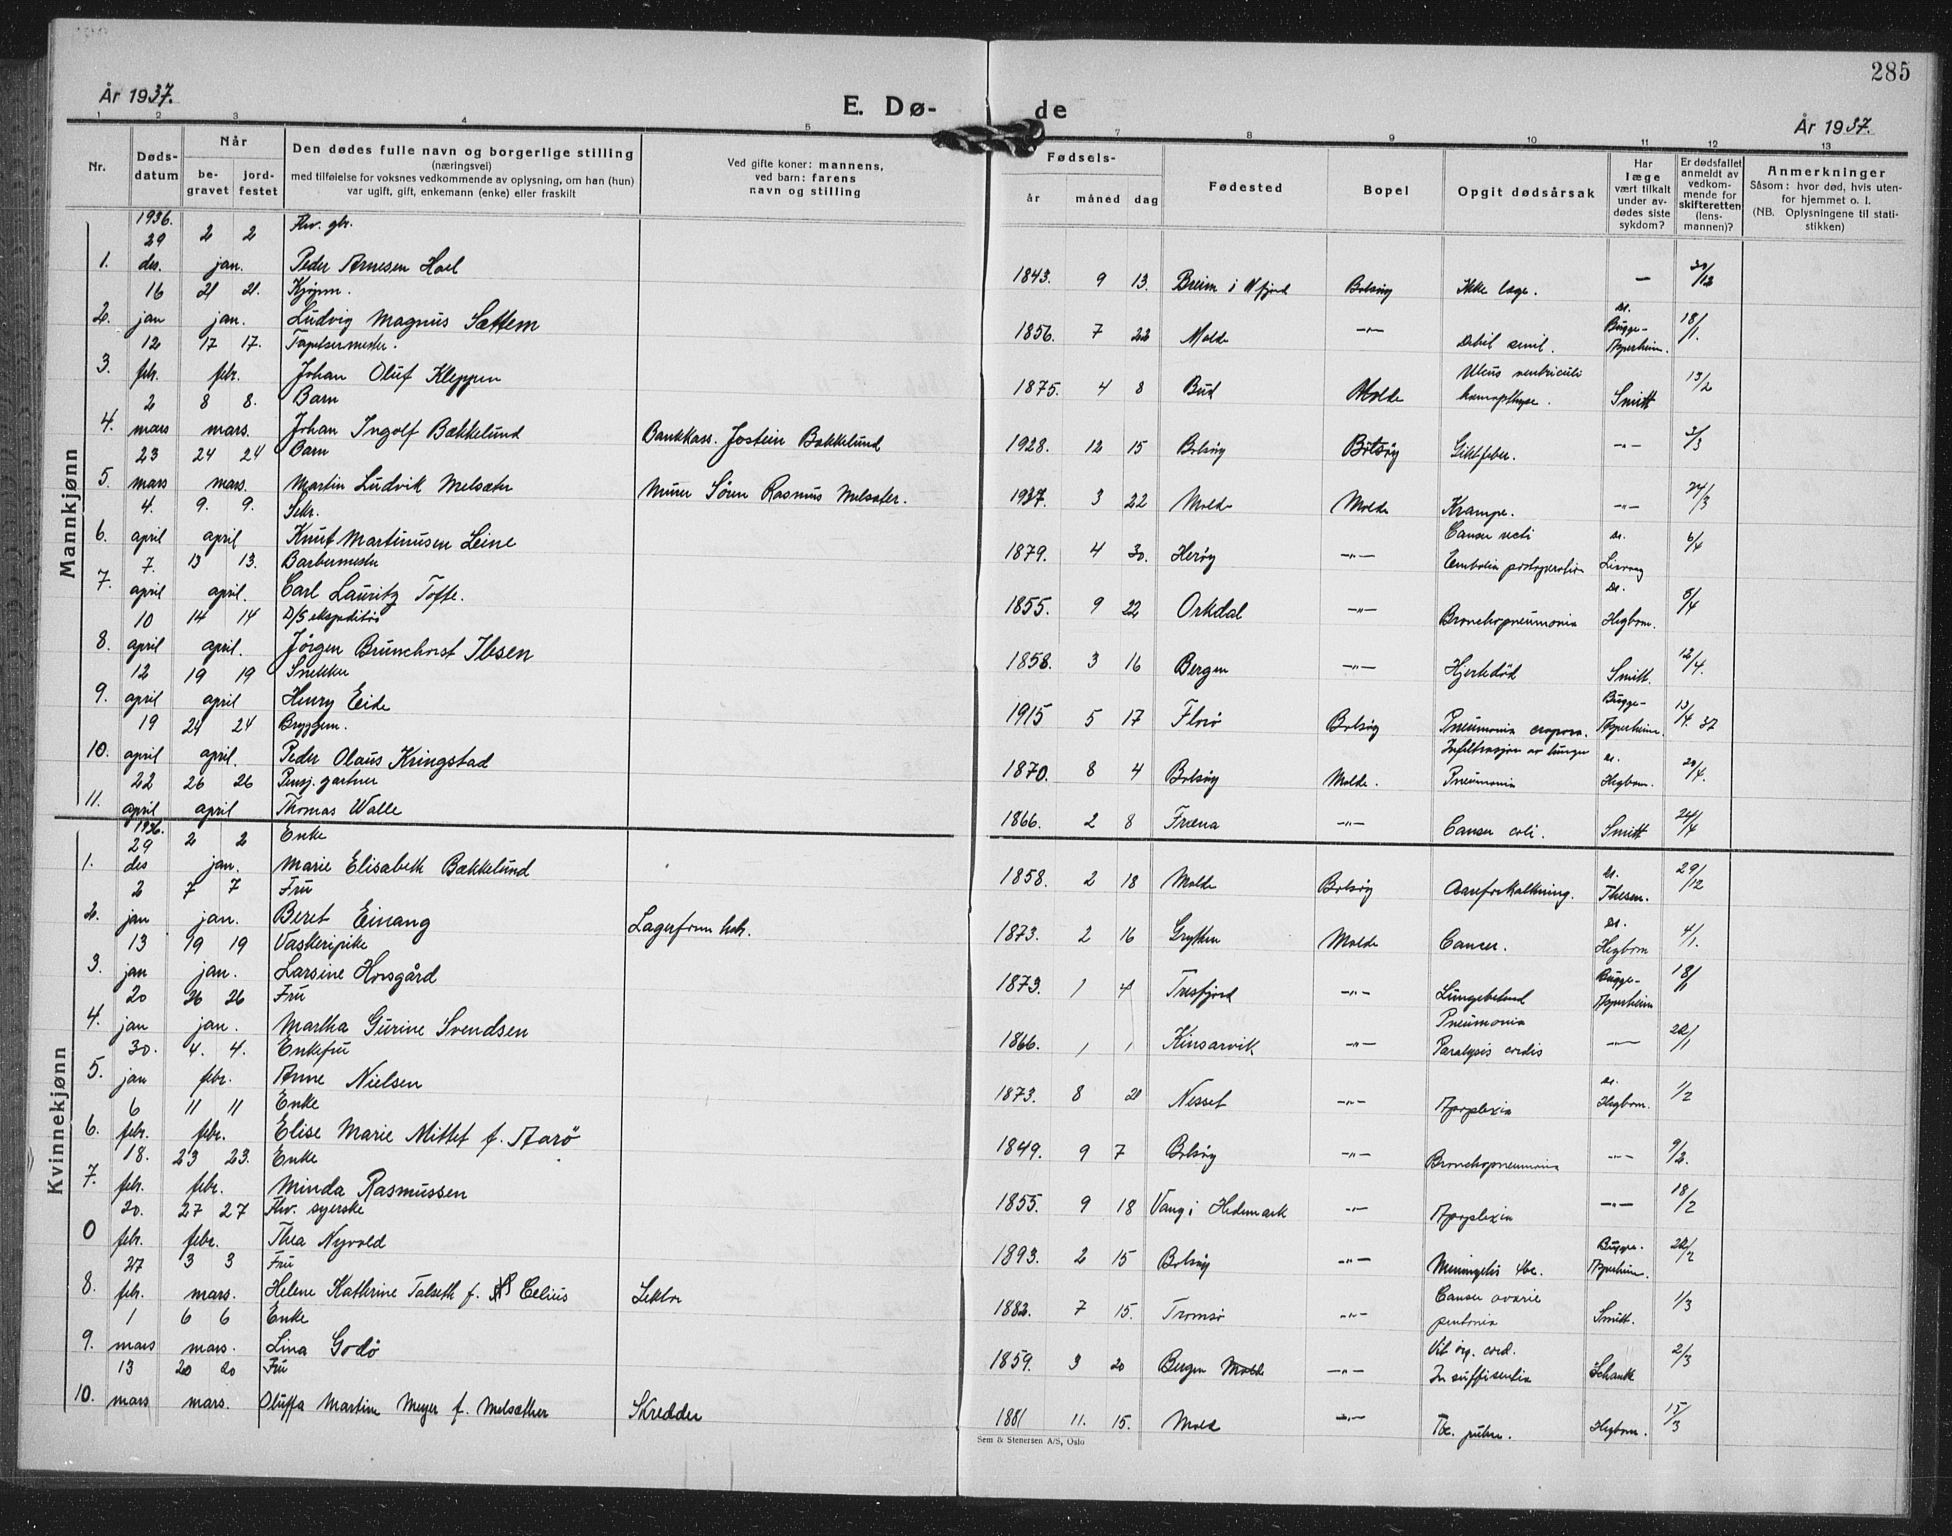 285
År 1937.
E. Dø-
de
År 1937.
1 2 3 4 5 7 8 9 10 11 12 13
Nr.
Døds-
datum
Når
be-
gravet
jord-
festet
Den dødes fulle navn og borgerlige stilling
(næringsvei)
med tilføielse for voksnes vedkommende av oplysning, om han (hun)
var ugift, gift, enkemann (enke) eller fraskilt
Ved gifte koner: mannens,
ved barn: farens
navn og stilling
Fødsels-
år måned dag
Fødested
Bopel
Opgit dødsårsak
Har
læge
vært tilkalt
under av-
dødes siste
sykdom?
Er dødsfallet
anmeldt av
vedkom-
mende for
skifteretten
(lens-
mannen)?
Anmerkninger
Såsom: hvor død, hvis uten-
for hjemmet o. l.
(NB. Oplysningene til stati-
stikken)
Mannkjønn
1936.
29 2 2 Fhv. gbr.
1. des. jan. Peder Arnesen Hoel 1843. 9 13. Breim i N fjord Bolsøy Ikke læge. — 30/12
16 21 21. Kjøpm.
2. jan jan. Ludvig Magnus Sættem 1856. 7 22 Molde —"— Debil. senil. Dr. Bugge-Asperheim. 18/1.
12 17 17. Tapetsermester.
3. feb. febr. Johan Oluf Kleppen 1875. 4 8 Bud Molde Ulcus ventriculi Smitt 13/2
2 8 8. Barn
4. mars mars. Johan Ingolf Bækkelund Bankkass. Jostein Bækkelund 1928. 12 15 Bolsøy Bolsøy Giktfeber. —"— 3/3
23 24 24 Barn
5. mars mars. Martin Ludvik Melsæter Murer Sören Rasmus Melsæter. 1937. 3 22 Molde Molde Krampe. —"— 24/3
4. 9. 9. Sekr.
6. april april Knut Martinusen Leine 1879. 4 30. Herøy —"— Cancer recti Embolia postoperation Dr. 6/4
7. 13 13. Barbermester
7. april april. Carl Lauritz Tofte. 1855. 9 22 Orkdal —"— Bronchopneumonia Dr. Hegbom. 8/4
10 14 14 D/S ekspeditör
8. april april. Jörgen Brunchorst Ibsen 1858. 3 16 Bergen —"— Hjertedød Smitt. 12/4.
12 19 19 Snekker
9. april april Henry Eide 1915 5 17 Florø Bolsøy Pneumonia crouposa. Bugge-Asperheim. 13/4. 37
19 24 24 Bryggem.
10. april april. Peder Olaus Kringstad 1870. 8 4 Bolsøy Molde. Infiltrasjon av lunger Pneumonia Dr. Hegbom. 20/4.
22 26 26 Pensj. gartner
11. april april Thomas Walle 1866. 2 8 Fræna —"— Cancer coli. Smitt 24/4
Kvinnekjønn
1936.
29 2 2 Enke
1. des jan. Marie Elisabeth Bækkelund 1858. 2 18 Molde Bolsøy Aareforkalkning. Dr. Thesen. 29/12
2 7 7 Fru
2. jan jan. Beret Einang Lagerform. 1873. 2 16 Grytten Molde Cancer. Dr. Hegbom 4/1.
13 19 19 Vaskeripike
3. jan jan. Larsine Horsgård 1873. 1 4 Tresfjord —"— Lungebetend Bugge-Asperheim 18/1
20 26 26 Fru
4. jan jan. Martha Gurine Svendsen 1866. 1 1 Kinsarvik —"— Pneumonia Paralysis cordis —"— 22/1
30. 4. 4. Enkefru
5. jan febr. Anne Nielsen 1873. 8 21 Nesset —"— Apoplexia Dr. Hegbom. 1/2
6 11 11 Enke
6. febr. febr. Elise Marie Mittet f. Aarø 1849. 9 7 Bolsøy —"— Bronchopneumonia —"— 9/2.
18. 23 23. Enke
7. feb. febr. Minda Rasmussen 1855. 9 18 Vang i Hedemark —"— Apoplexia —"— 18/2
20. 27 27 Fhv. syerske
0 feb. febr. Thea Nyvold 1893. 2 15 Bolsøy —"— Meningitis tbc. Bugge-Asperheim. 22/2
27 3 3 Fru
8. feb. mars. Helene Kathrine Talseth f. Celius Lektor 1882. 7 15. Tromsø —"— Cancer ovarie Smitt. 1/3
1 6 6 Enke
9. mars mars. Lina Godø 1859. 3 20 Bergen Molde —"— Vit. org. cord. Insuffisentia Schank 2/3
13 20 20 Fru
10. mars mars. Oluffa Martine Meyer f. Melsæther Skredder 1881 11. 15. Molde —"— Tbc. pulm. Hegbom. 15/3
Sem & Stenersen A/S, Oslo